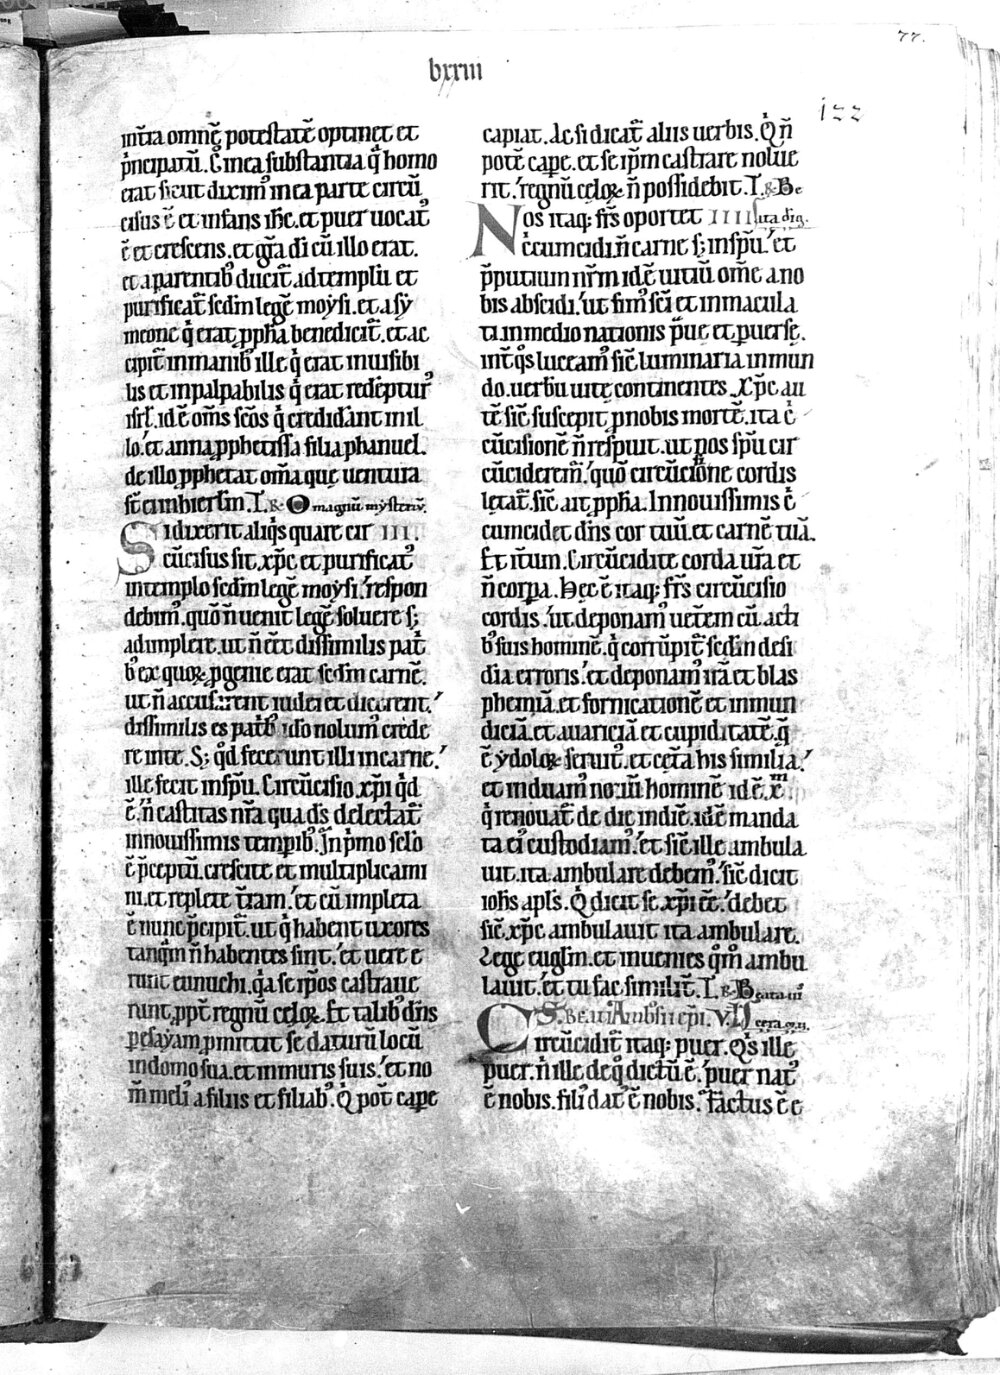 77.
lxxiii
122
int̄ra omnē potestatē optinet et
p̊ncipatū. Et in ea substantia q̊ homo
erat sicut diximꝰ in ea parte circū
cisus ē et infans ih̄c. et puer uocat᷑
ē et crescens. et gr̄a dī cū illo erat.
et a parentibꝰ ducit᷑ ad templū et
purificat᷑ sedm legē moẏsi. et a sẏ
meone q̊ erat ꝓph̄a benedicit᷑. et ac
cipit᷑ in manibꝰ ille q̊ erat inuisibi
lis et inpalpabilis q̊ erat redēptur᷑
isrl̄. idē om̄s sc̄os q̊ crediderant in il
lo. et anna ꝓphetissa filia phanuel.
de illo ꝓphetat om̄a quę uentura
st̄ in hierl̄m. T. R O magnū mẏsteriū.
Si dixerit aliq̊s quare cir III.
cūcisus sit xp̄c et purificatꝰ
in templo sedm legē moẏsi. respon
debimꝰ. quō n̄ uenit legē soluere s;
adimplere. ut n̄ eēt dissimilis pat̄
bꝰ ex quoꝝ ꝓgenie erat sedm carnē.
ut n̄ accusarent iudei et dicerent.
dissimilis es pat̄bꝰ idō nolumꝰ crede
re in te. S; qd̊ fecerunt illi in carne.
ille fecit in sp̄u. Circūcisio xp̄i qd̊
ē. n̄ castitas nr̄a qua ds̄ delectat᷑
in nouissimis temporibꝰ. In p̊mo sc̄lo
ē p̄ceptū. crescite et multiplicami
ni. et replete t̄ram. et cū impleta
ē nunc p̄cipit᷑. ut q̊ habent uxores
tanq̄m n̄ habentes sint. et uere e
runt eunuchi. q̊a se ip̄os castraue
runt ꝓpt̄ regnū celoꝝ. Et talibꝰ dn̄s
ꝑ esaẏam ꝓmittit se daturū locū
in domo sua. et in muris suis. et no
m̄ meliꝰ a filiis et filiabꝰ. Q̊ pot̄ capē
capiat. Ac si dicat᷑ aliis uerbis. Q̊ n̄
potē capē. et se ip̄m castrare nolue
rit. regnū celoꝝ n̄ possidebit. T. R Be
Nos itaq; fr̄s oportet IIII ata dīg.
circumcidi n̄ carne s; in sp̄u. et
p̄putium nr̄m idē uitiū om̄e a no
bis abscidi. ut simꝰ sc̄i et inmacula
ti in medio nationis p̄ue et ꝑuerse.
int̄ q̊s luceamꝰ sic̄ luminaria in mun
do. uerbū uitę continentes. Xp̄c au
tē sic̄ suscepit ꝓ nobis mortē. ita ci
cūcisionē n̄ respuit. ut nos sp̄u cir
cūcideremꝰ. quō circūcisione cordis
letat᷑. sic̄ ait ꝓph̄a. In nouissimis ci
cumcidet dn̄s cor tuū. et carnē tuā.
Et it̄um. Circūcidite corda ur̄a et
n̄ corpora. Hęc ē itaq; fr̄s circūcisio
cordis. ut deponamꝰ uet̄em cū acti
bꝰ suis hominē. q̊ corrūpit᷑ sedm desi
dia erroris. et deponamꝰ irā et blas
phemiā. et fornicationē et inmun
diciā. et auariciā et cupiditatē. q̄
ē ẏdoloꝝ seruitꝰ. et cet̄a his similia.
et induamꝰ nouū hominē id ē xp̄m
q̊ renouat᷑ de die in diē. idē manda
ta eiꝰ custodiamꝰ. et sic̄ ille ambula
uit. ita ambulare debemꝰ. sic̄ dicit
ioh̄s apl̄s. Q̊ dicit se xp̄i eē. debet
sic̄ xp̄c ambulauit ita ambulare.
Lege eugl̄m. et inuenies qm̊ ambu
lauit. et tu fac similit᷑. T. R Beata uī
S. Beati Ambrosii ep̄i. V.
Circūcidit᷑ itaq; puer. Q̊s ille
puer. n̄ ille de q̊ dictū ē. puer natꝰ
ē nobis. filiꝰ datꝰ ē nobis. Factus ē e